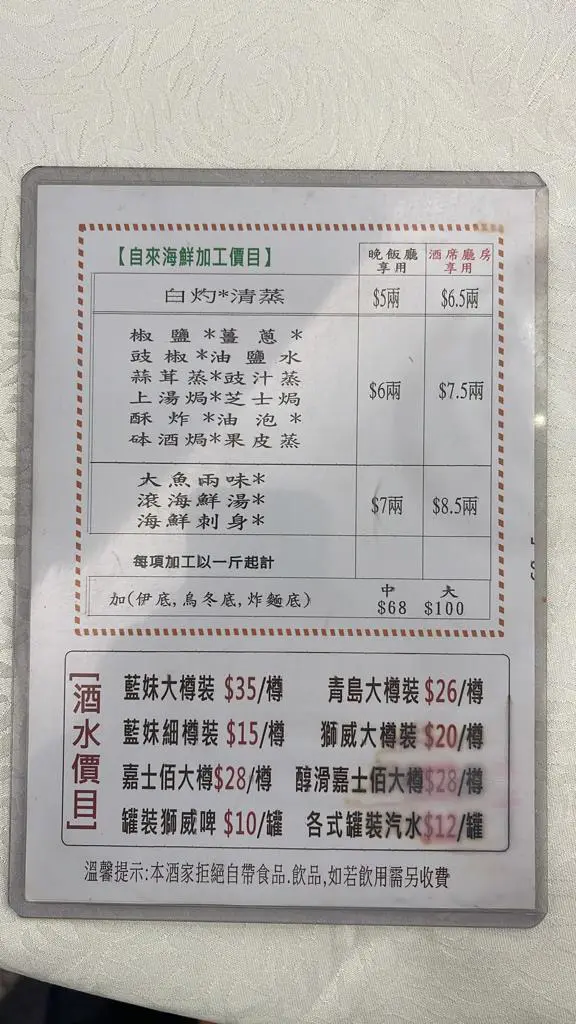 【自來海鮮加工價目】 晚飯廳享用 酒席廳房享用
白灼*清蒸 $5兩 $6.5兩
椒鹽*薑蔥*
豉椒*油鹽水
蒜茸蒸*豉汁蒸
上湯焗*芝士焗 $6兩 $7.5兩
酥炸*油泡*
砵酒焗*果皮蒸
大魚兩味*
滾海鮮湯* $7兩 $8.5兩
海鮮刺身*
每項加工以一斤起計
加(伊底,烏冬底,炸麵底) 中 $68 大 $100
[酒水價目]
藍妹大樽裝 $35/樽 青島大樽裝 $26/樽
藍妹細樽裝 $15/樽 獅威大樽裝 $20/樽
嘉士佰大樽$28/樽 醇滑嘉士佰大樽$28/樽
罐裝獅威啤 $10/罐 各式罐裝汽水$12/罐
溫馨提示:本酒家拒絕自帶食品.飲品,如若飲用需另收費